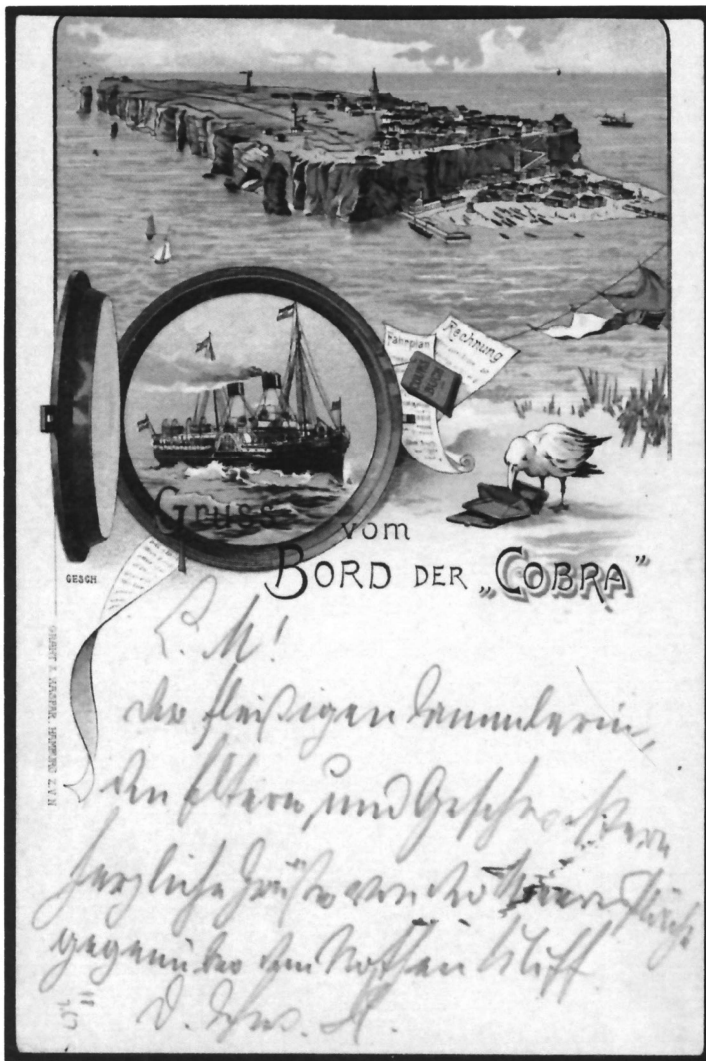 Fahrplan
Rechnung
Gruss
vom
BORD DER „COBRA"
GESCH.
L. M!
Der fleißigen Sammlerin,
den Eltern und Geschwistern
herzliche Grüße von der Meeresfläche
gegenüber dem Rothen Kliff.